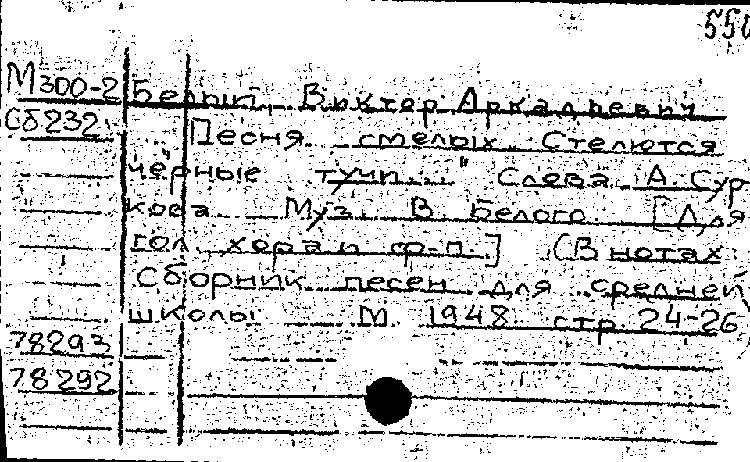 550
М300-2 Белый, Виктор Аркадьевич
Сб232 Песня смелых Стелются
черные тучи..." Слова А. Сур
кова Муз. В. Белого [Для
гол. хора и ф-п.] (В нотах
Сборник песен для средней
школы М. 1948 стр. 24-26)
78293
78292